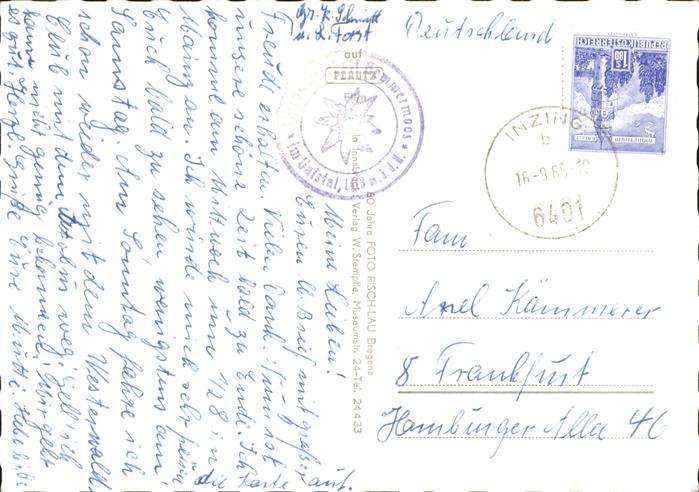 Meine Lieben!
Euren lb. Brief mit großer
Freude erhalten. Vielen Dank. Nun ist
unsere schöne Zeit bald zu Ende. Ich
komme am Mittwoch um 1/2 8 in
Mainz an. Ich würde mich sehr freuen
Euch bald zu sehen wenigstens am
Samstag. Am Sonntag fahre ich
schon wieder mit dem Westerwald
Club mit dem weg, gell ich
kann nicht genug bekommen.
es grüßt Herzl. Eure Mutti.
die Karte auf.
Deutschland
Fam
Axel Kämmerer
8 Frankfurt
Hamburger Allee 46
REPUBLIK ÖSTERREICH
1.80
INZING
b
16.-9.65
6401
auf
Im Gaistal, 1413 m. ü. d. M.
60 Jahre FOTO RISCH-LAU Bregenz
Verlag W. Stempfle, Museumstr. 24-Tel. 24433